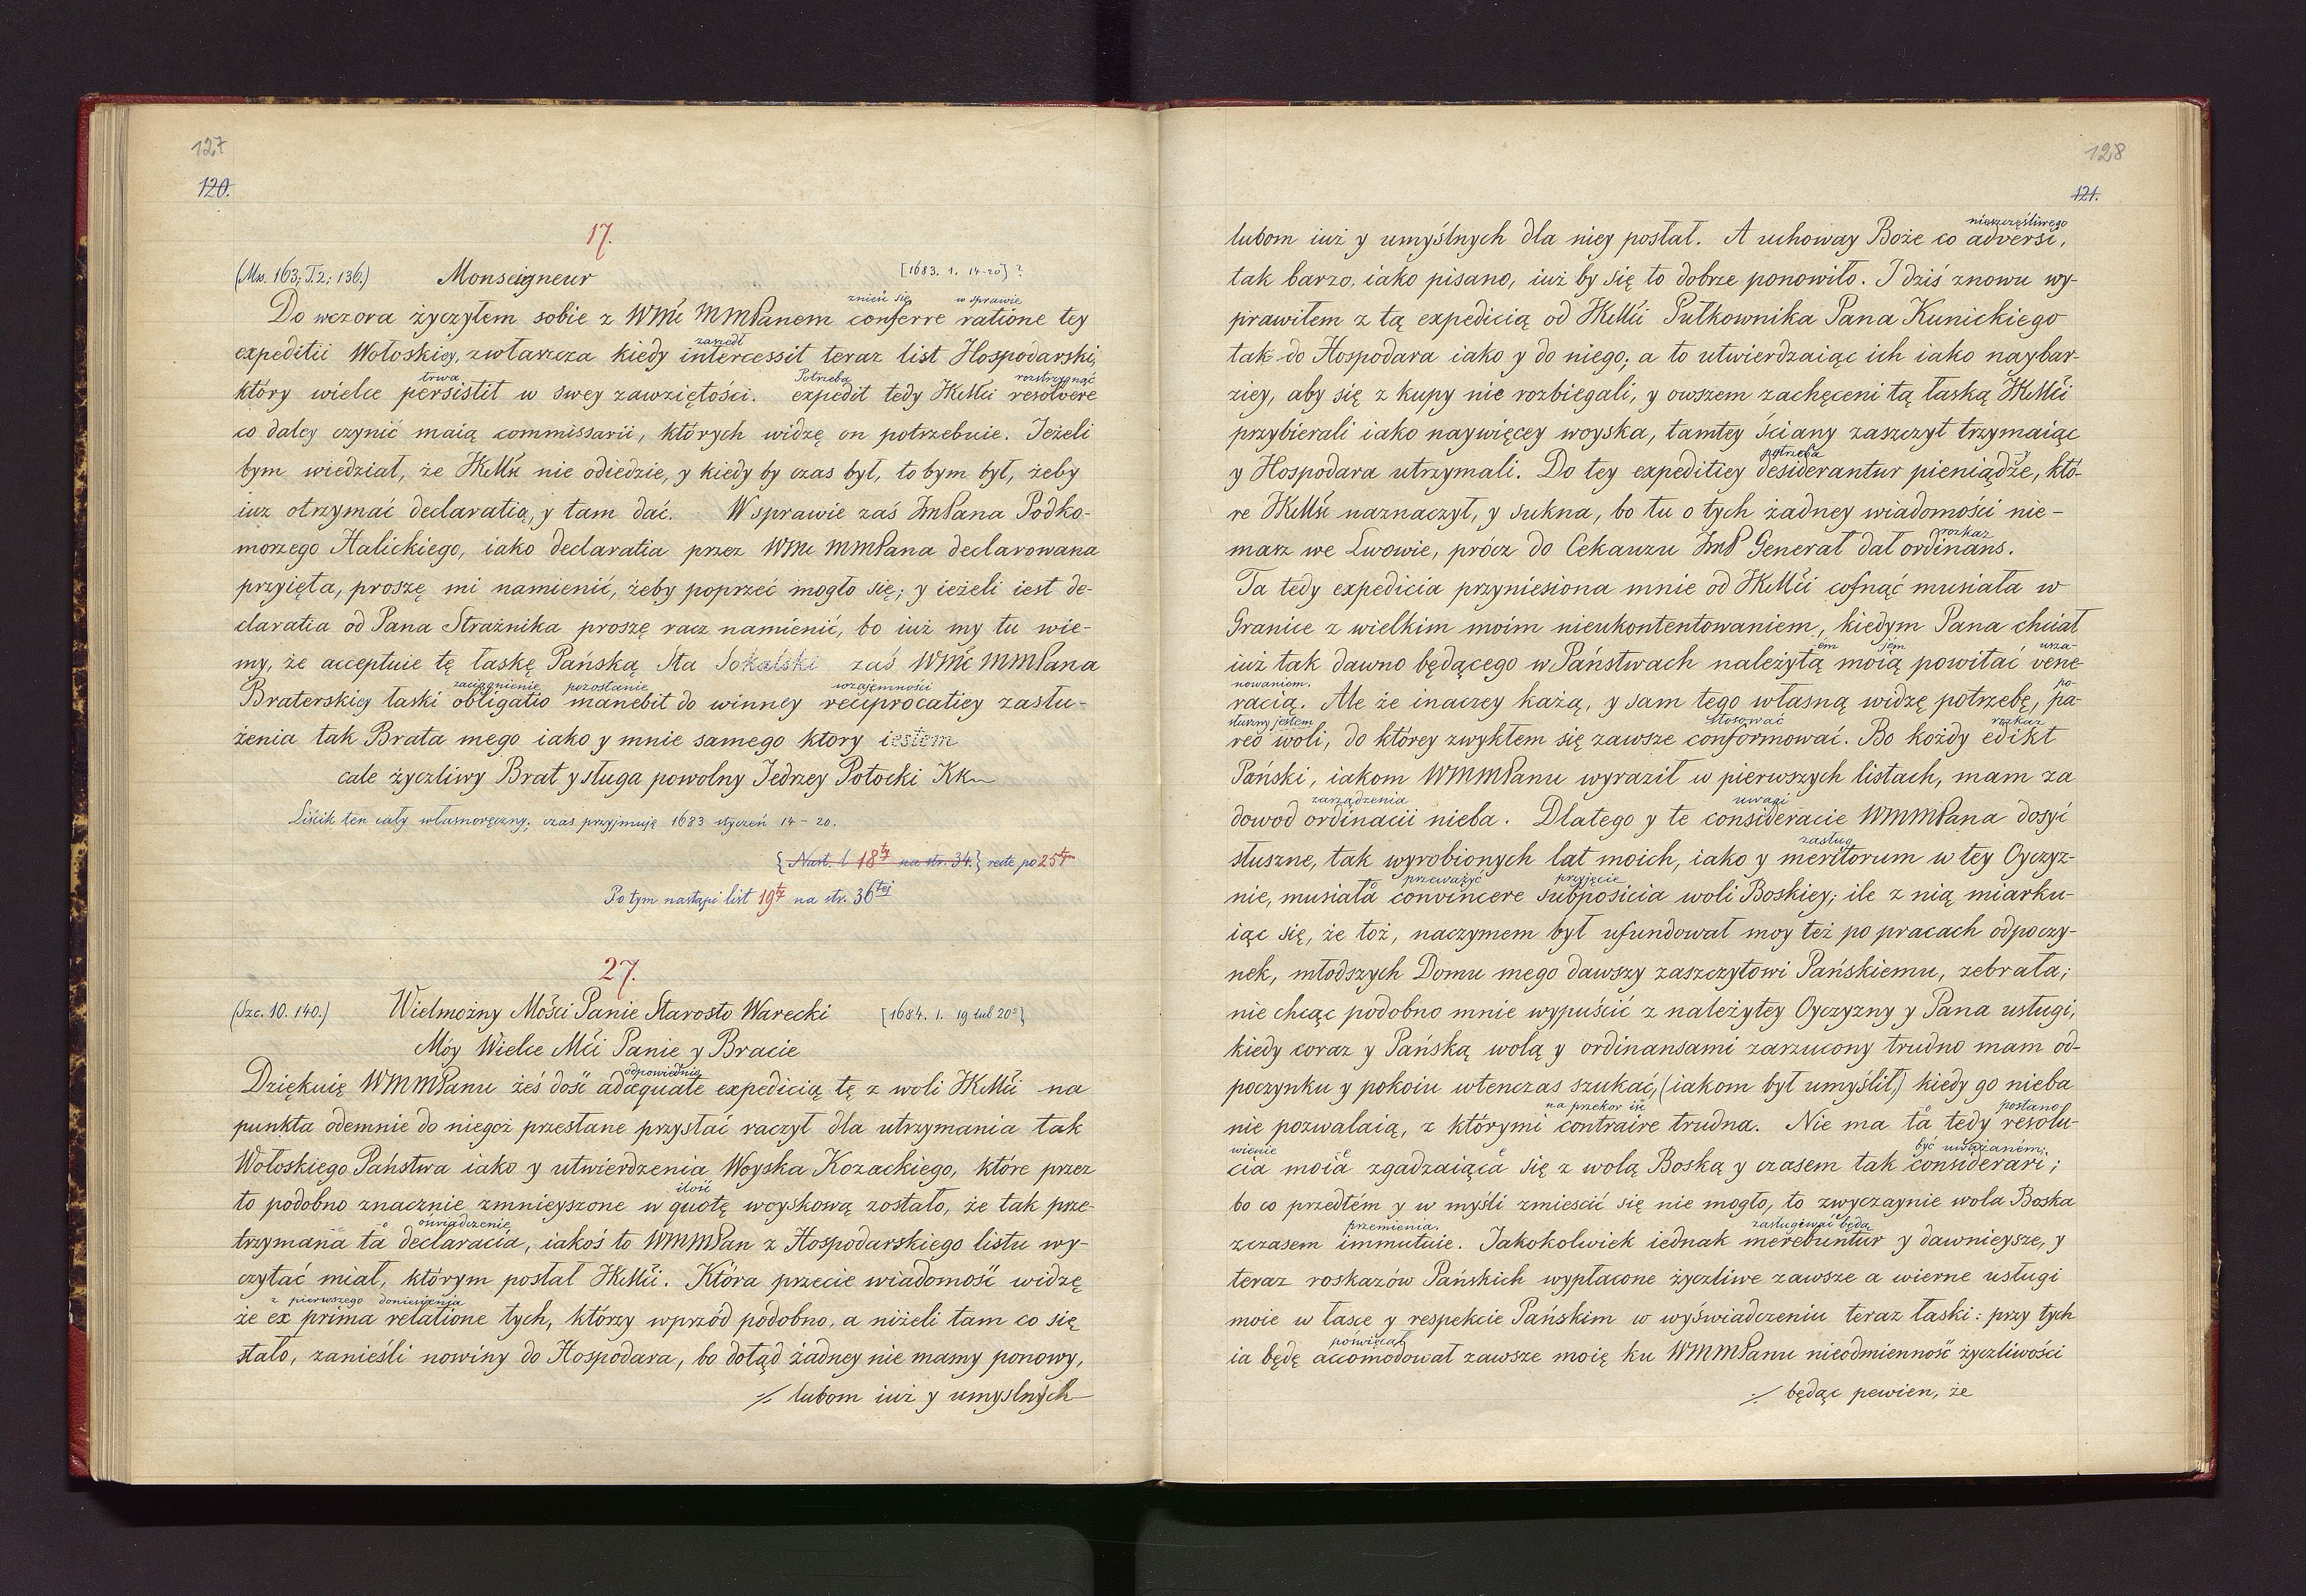 127
120.
17.
(Mss. 163; T. 2; 136.) Monseigneur [1683. 1. 14-20] ?
znieść się w sprawie
Do wczora życzyłem sobie z WMć MMPanem conferre ratione tey
zaszedł
expeditii Wołoskiey, zwłaszcza kiedy intercessit teraz list Hospodarski,
trwa Potrzeba rozstrzygnąć
który wielce persistit w swey zawziętości. expedit tedy JKMći resolvere
co daley czynić maią commissarii, których widzę on potrzebuie. Jeżeli
bym wiedział, że JKMść nie odiedzie, y kiedy by czas był, to bym był, żeby
iuz otrzymać declaratią, y tam dać. W sprawie zaś JmPana Podko-
morzego Halickiego, iako declaratia przez WMć MMPana declarowana
przyięta, proszę mi namienić, żeby poprzeć mogło się; y ieżeli iest de-
claratia od Pana Strażnika proszę racz namienić, bo iuż my tu wie-
my, że acceptuie tę łaskę Pańską Sta Sokalski zaś WMć MMPana
zaciągnienie pozostanie wzajemności
Braterskiey łaski obligatio manebit do winney reciprocatiey zasłu-
żenia tak Brata mego iako y mnie samego ktory iestem
cale życzliwy Brat y sługa powolny Jedrzey Potocki Kk
Liścik ten cały własnoręczny; czas przyjmuję 1683 styczeń 14 - 20.
{ Nast. l 18ty na str. 34. } recte po 25tym
Po tym nastąpi list 19ty na str. 36tej
27.
(Szc. 10. 140.) Wielmożny Mości Panie Starosto Warecki [1684. 1. 19 lub 20º]
Móy Wielce Mći Panie y Bracie
odpowiednią
Dziękuię WMMPanu żeś dość adæquate expedicią tę z woli JKMći na
punkta odemnie do niegoż przesłane przysłać raczył dla utrzymania tak
Wołoskiego Państwa iako y utwierdzenia Woyska Kozackiego, które przez
ilość
to podobno znacznie zmnieyszone w quotę woyskową zostało, że tak prze-
oświadczenie
trzymana ta declaracia, iakoś to WMMPan z Hospodarskiego listu wy-
czytać miał, którym posłał JKMći. Która przecie wiadomość widzę
z pierwszego doniesienia
że ex prima relatione tych, którzy wprzód podobno, a niżeli tam co się
stało, zanieśli nowiny do Hospodara, bo dotąd żadney nie mamy ponowy,
⁒ lubom iuż y umyslnych
128
121.
nieszczęśliwego
lubom iuż y umyślnych dla niey posłał. A uchoway Boże co adversi,
tak barzo, iako pisano, iuż by się to dobrze ponowiło. I dziś znowu wy-
prawiłem z tą expedicią od JKMći Pułkownika Pana Kunickiego
tak do Hospodara iako y do niego; a to utwierdzaiąc ich iako naybar-
ziey, aby się z kupy nie rozbiegali, y owszem zachęceni tą łaską JKMći
przybierali iako naywięcey woyska, tamtey ściany zaszczyt trzymaiąc
potrzeba
y Hospodara utrzymali. Do tey expeditiey desiderantur pieniądże, któ-
re JKMść naznaczył, y sukna, bo tu o tych żadney wiadomości nie-
rozkaz
masz we Lwowie, prócz do Cekauzu JmP Generał dał ordinans.
Ta tedy expedicia przyniesiona mnie od JKMći cofnąć musiała w
Granice z wielkim moim nieukontentowaniem, kiedym Pana chciał
em jem usza-
iuż tak dawno będącego w Państwach należytą moią powitać vene
nowaniem. po-
racią. Ale że inaczey każą, y sam tego własną widzę potrzebę, pa-
słuszny jestem stosować rozkaz
reo woli, do którey zwykłem się zawsze conformować. Bo kożdy edikt
Pański, iakom WMMPanu wyraził w pierwszych listach, mam za
zarządzenia uwagi
dowod ordinacii nieba. Dlatego y te consideracie WMMPana dosyć
zasług
słuszne, tak wyrobionych lat moich, iako y meritorum w tey Oyczyz-
przeważyć przyjęcie
nie, musiała convincere subposicia woli Boskiey; ile z nią miarku-
iąc się, że toż, naczymem był ufundował moy też po pracach odpoczy-
nek, młodszych Domu mego dawszy zaszczytowi Pańskiemu, zebrała;
nie chcąc podobno mnie wypuścić z należytey Oyczyzny y Pana usługi,
kiedy coraz y Pańską wolą y ordinansami zarzucony trudno mam od-
poczynku y pokoiu wtenczas szukać, (iakom był umyślił,) kiedy go nieba
na przekor iść postano-
nie pozwalaią, z którymi contraire trudna. Nie ma ta tedy resolu-
wienie być uważaném;
cia moia zgadzaiąca się z wolą Boską y czasem tak considerari;
bo co przedtém y w myśli zmieścić się nie mogło, to zwyczaynie wola Boska
przemienia. zasługiwać będą
zczasem immutuie. Jakokolwiek iednak merebuntur y dawnieysze, y
teraz roskazów Pańskich wypłacone życzliwe zawsze a wierne usługi
moie w łasce y respekcie Pańskim w wyświadczeniu teraz łaski: przy tych
poświęcał
ia będę accomodował zawsze moię ku WMMPanu nieodmienność życzliwości
⁒ będąc pewien, że